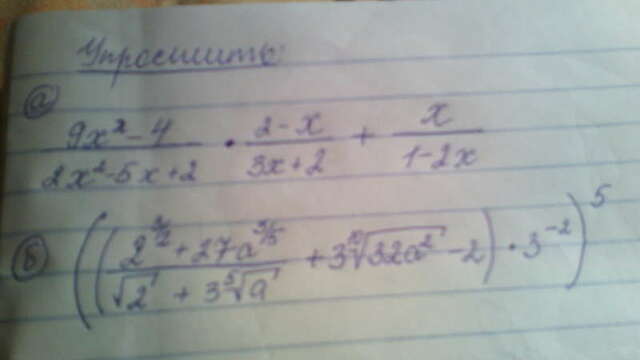 Упростить:
а) \frac{9x^2-4}{2x^2-5x+2} \cdot \frac{2-x}{3x+2} + \frac{x}{1-2x}
б) \left(\left(\frac{2^{3/2}+27a^{3/5}}{\sqrt{2}+3\sqrt[5]{a}} + 3\sqrt[5]{32a^2} - 2\right) \cdot 3^{-2}\right)^5